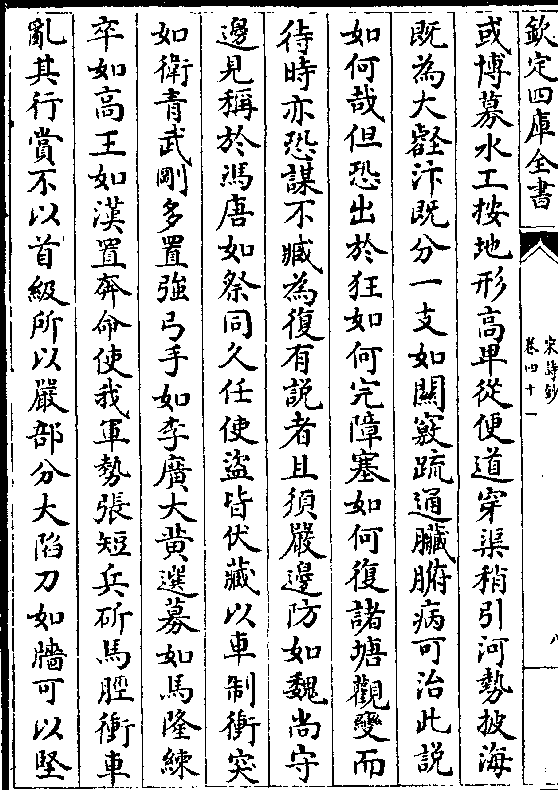 欽定四庫全書
宋詩鈔
卷四十一
八
或博募水工按地形高卑從便道穿渠稍引河勢披海
既為大壑汴既分一支如關竅疏通臟腑病可治此説
如何哉但恐出於狂如何完障塞如何復諸塘觀變而
待時亦恐謀不臧為復有説者且須嚴邊防如魏尚守
邊見稱於馮唐如祭同久任使盜皆伏藏以車制衝突
如衛青武剛多置強弓手如李廣大黄選募如馬隆練
卒如高王如漢置奔命使我軍勢張短兵斫馬脛衝車
亂其行賞不以首級所以嚴部分大陌刀如牆可以堅